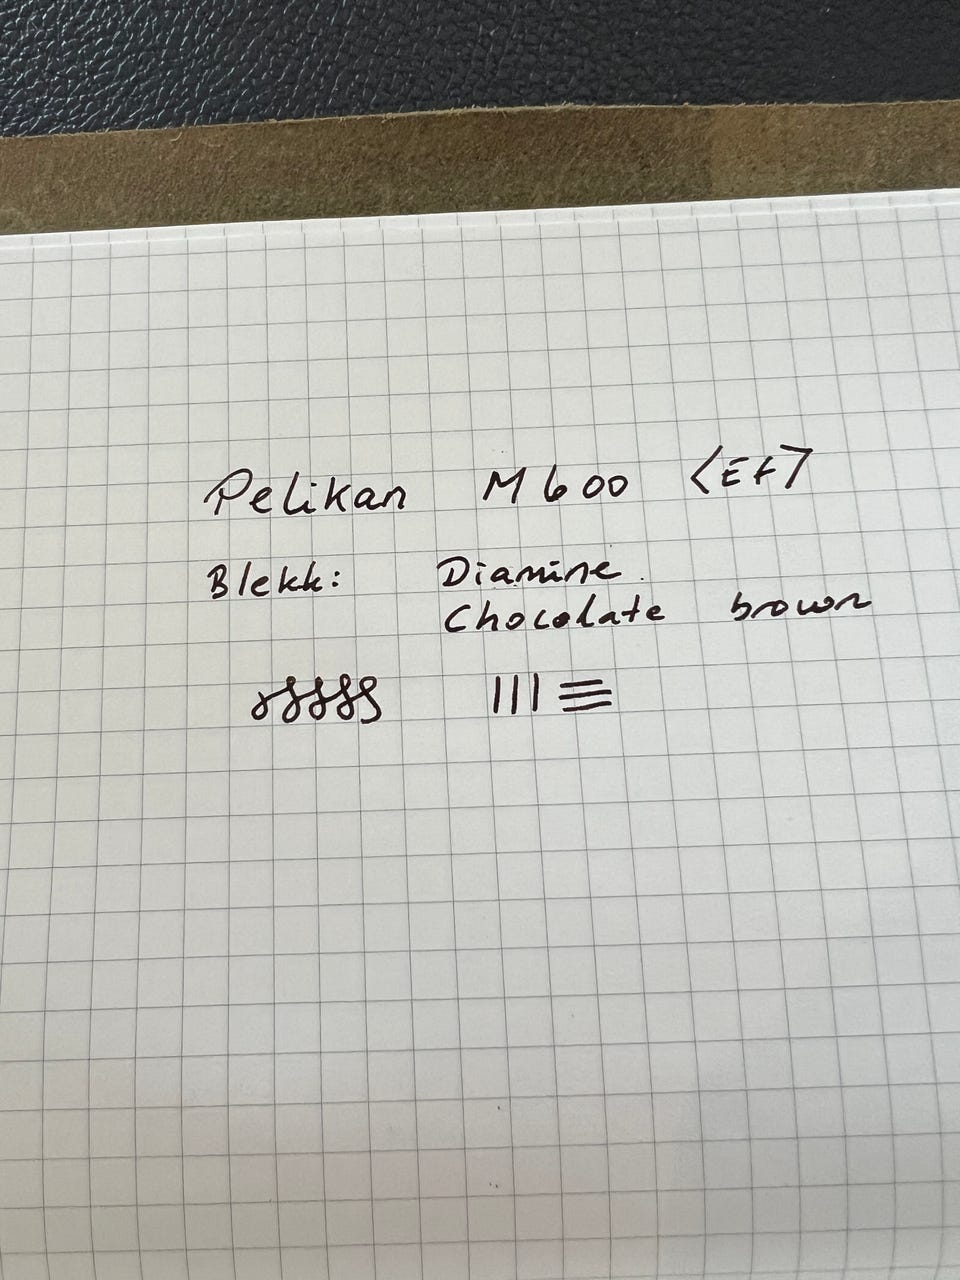 Pelikan M600 <EF>
Blekk: Diamine
Chocolate brown